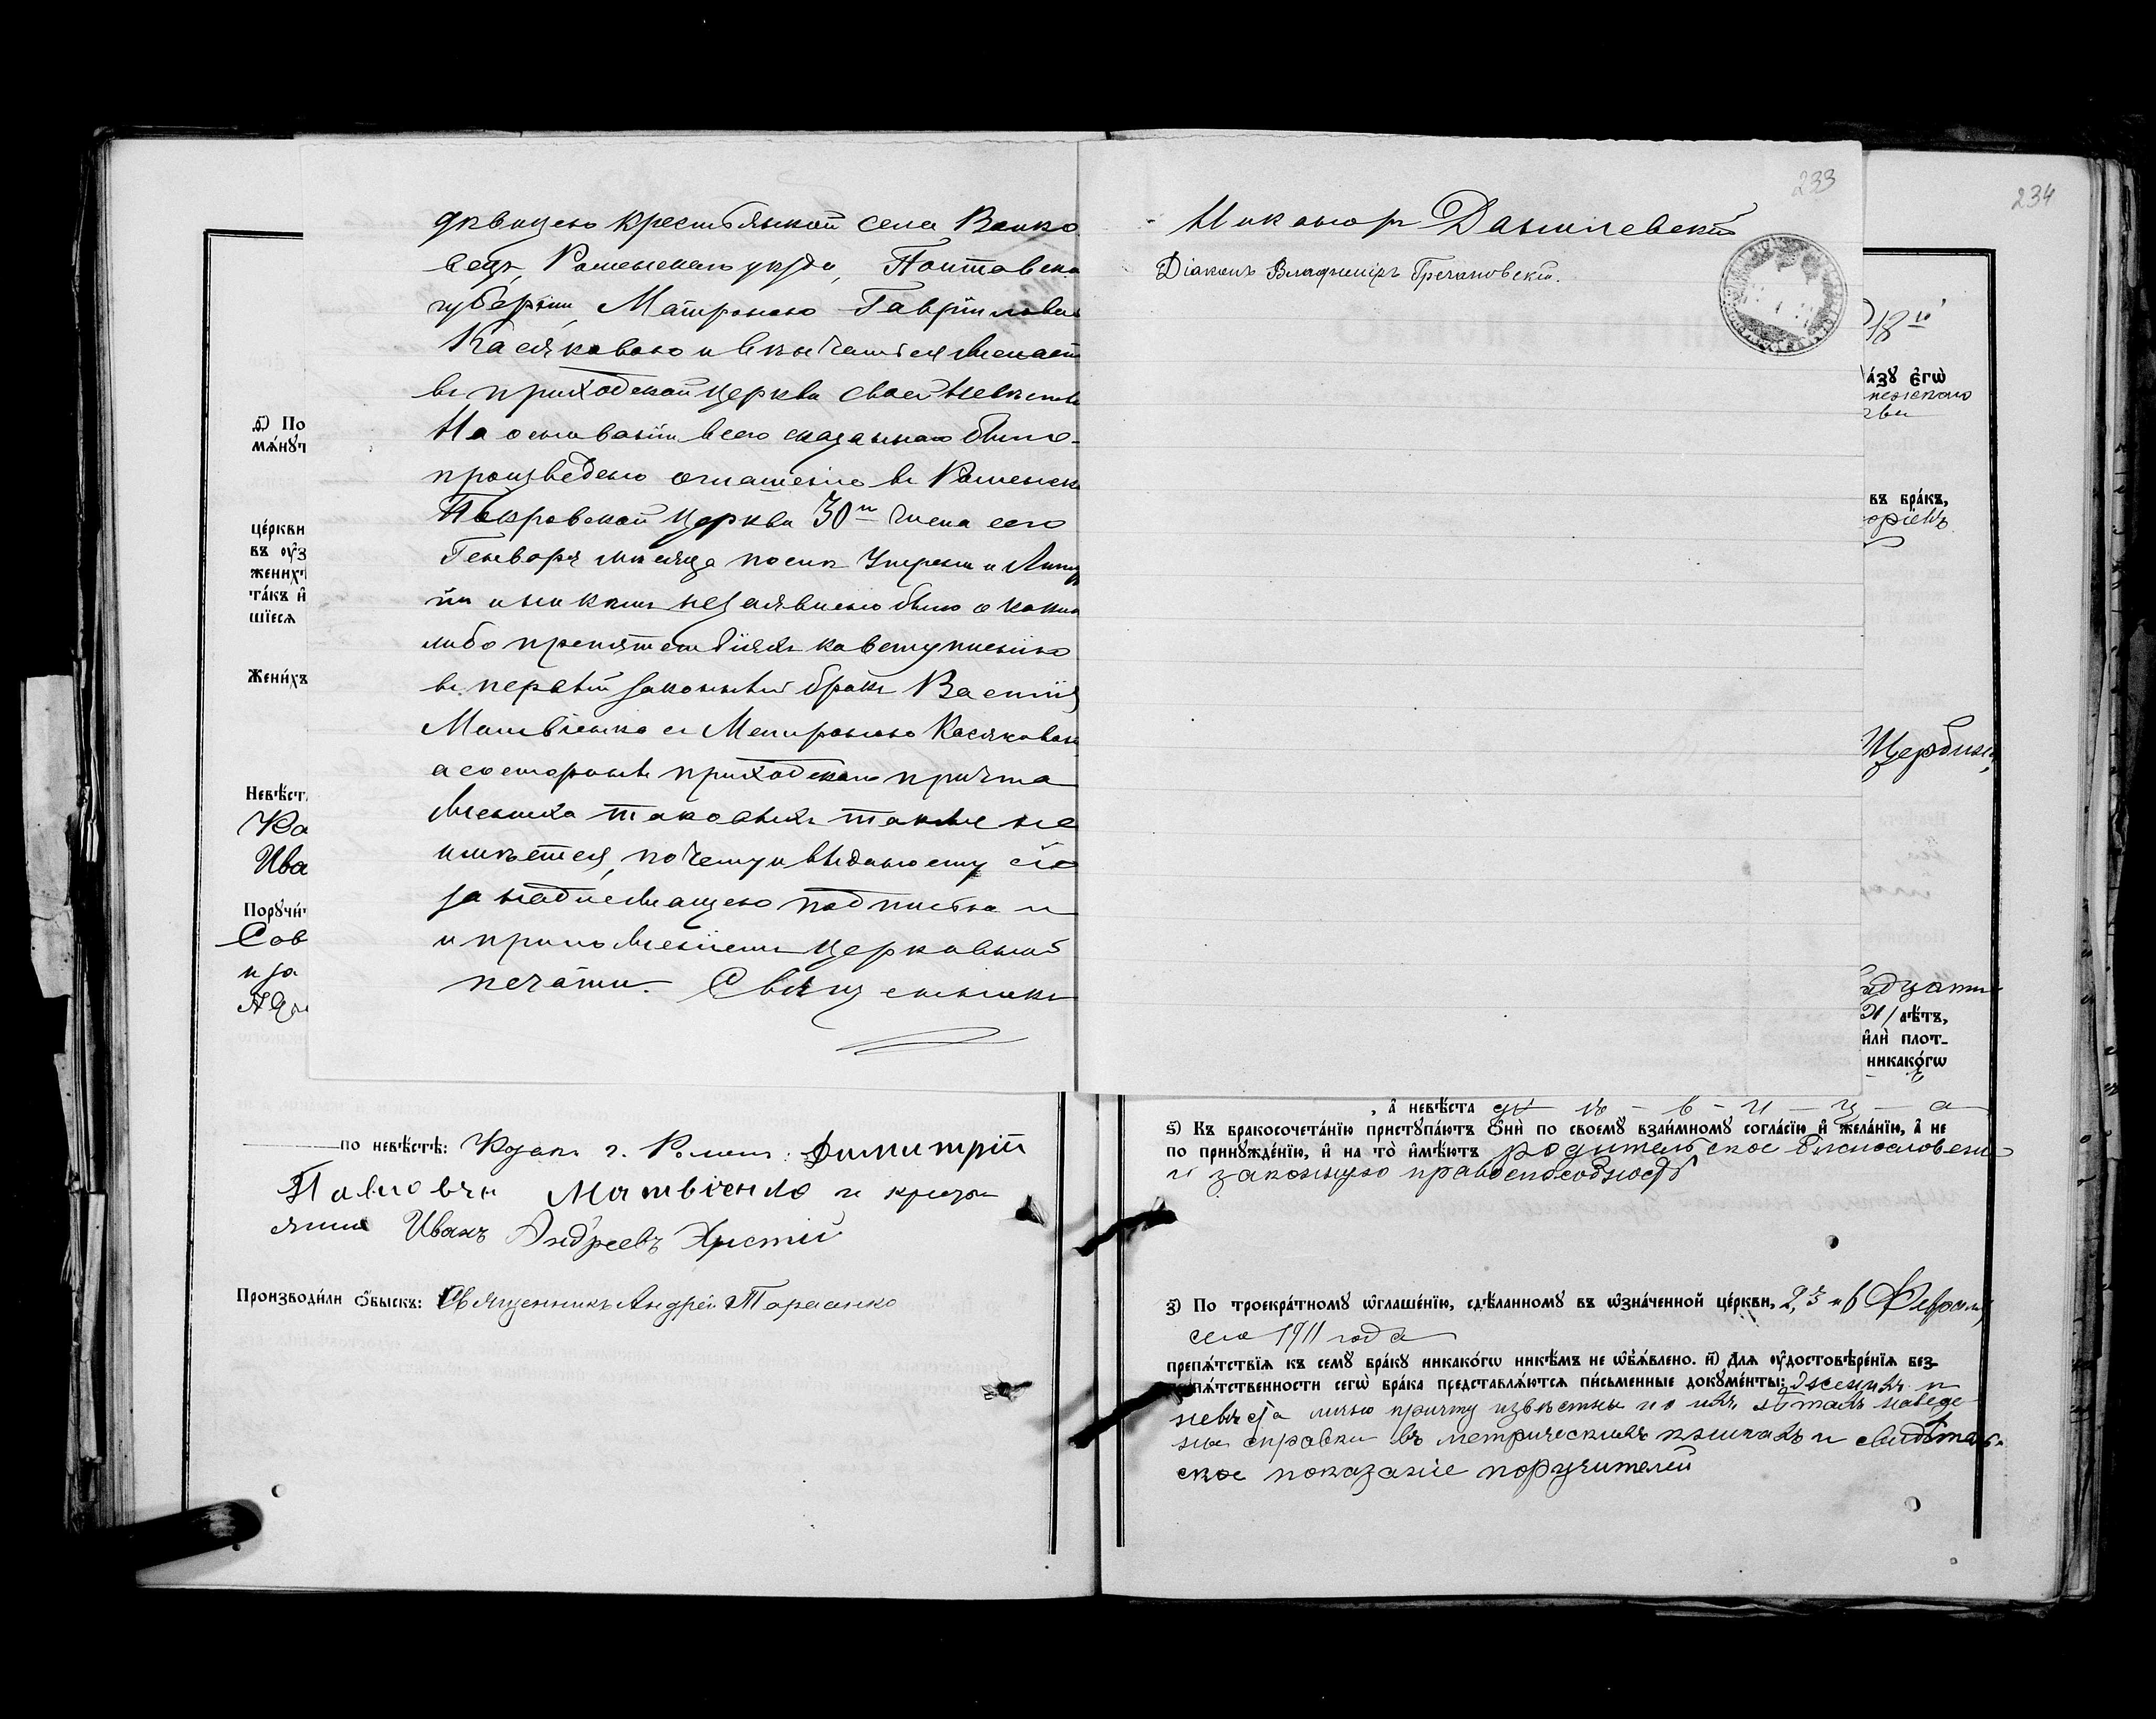 дѣвицею крестьянкой села Волко
вецъ, Роменскаго уѣзда, Полтавско
губерніи, Матроною Гавріилово
Касяковою и вѣнчаться желает
въ приходской церкви своей невѣсты
На основаніи всего сказаннаго было
произведено оглашеніе въ Роменск
Покровской церкви 30го числа сего
Генваря мѣсяца послѣ Утрени и Литур
ій и никѣмъ незаявлено было о каких
либо препятствіяхъ ко вступленію
въ первый законный бракъ Василія
Матвіенка съ Матроною Касяковою
а со стороны приходскаго причта
жениха таковыхъ также не
имѣется, почему и выдано ему сіе
за надлежащею подписью и
и приложеніемъ церковной
печати. Священникъ
233
Никаноръ Данилевскій
Діаконъ Владиміръ Гречановскій.
234
д) По
мѧнȣт
це́ркви
въ оу҆з
жених
та́къ и҆
шїесѧ
Жени́хъ
Невѣ́ст
Ка
Ива
Порȣчи́т
Сов
и за
по невѣ́стѣ: Козакъ г. Роменъ Димитрій
Павловъ Матвіенко и кресть
янинъ Иванъ Андреевъ Христій
Производи́ли ѻ҆́быскъ: Священникъ Андрей Тарасенко
18го
а́зȣ є҆гѡ̀
въ бра́къ,
Щербины,
21/ лѣ́тъ,
и҆лѝ плот-
никако́гѡ
, а҆ невѣ́ста дѣ - в - и - ц - а
ѕ) Къ бракосочета́нїю пристȣпа́ютъ ѻ҆нѝ по своемȣ̀ взаи́мномȣ согла́сїю и҆ жела́нїю, а҆ не
по принȣжде́нїю, и҆ на то̀ и҆мѣ́ютъ родительское благословеніе
и законную правоспособность
з) По троекра́тномȣ ѡ҆глаше́нїю, сдѣ́ланномȣ въ ѡ҆зна́ченной це́ркви, 2, 3 и 6 Февраля
сего 1911 года
препѧ́тствїѧ къ семȣ̀ бра́кȣ никако́гѡ никѣ́мъ не ѡ҆б̾ѧ́влено. и҃) Длѧ оу҆достовѣре́нїѧ без-
пѧ́тственности сегѡ̀ бра́ка представлѧ́ютсѧ пи́сьменные докȣме́нты: женихъ и
невѣста лично причту извѣстны и о ихъ лѣтахъ наведе
ны справки въ метрическихъ книгахъ и свидѣтель-
ское показаніе поручителей